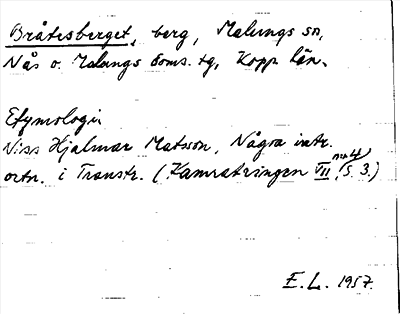 Bråtesberget, berg, Malungs sn,
Nås o. Malungs doms. tg, Kopp. län.
Etymologi
Niss Hjalmar Matsson, Några intr.
ortn. i Transtr. (Kamratringen VII, nr 4, s. 3.)
E. L. 1957.